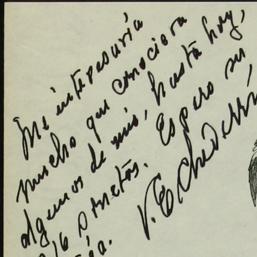 Me interesaría
mucho que conociera
algunos de mis, hasta hoy,
16 sonetos. Espero su
V. E.